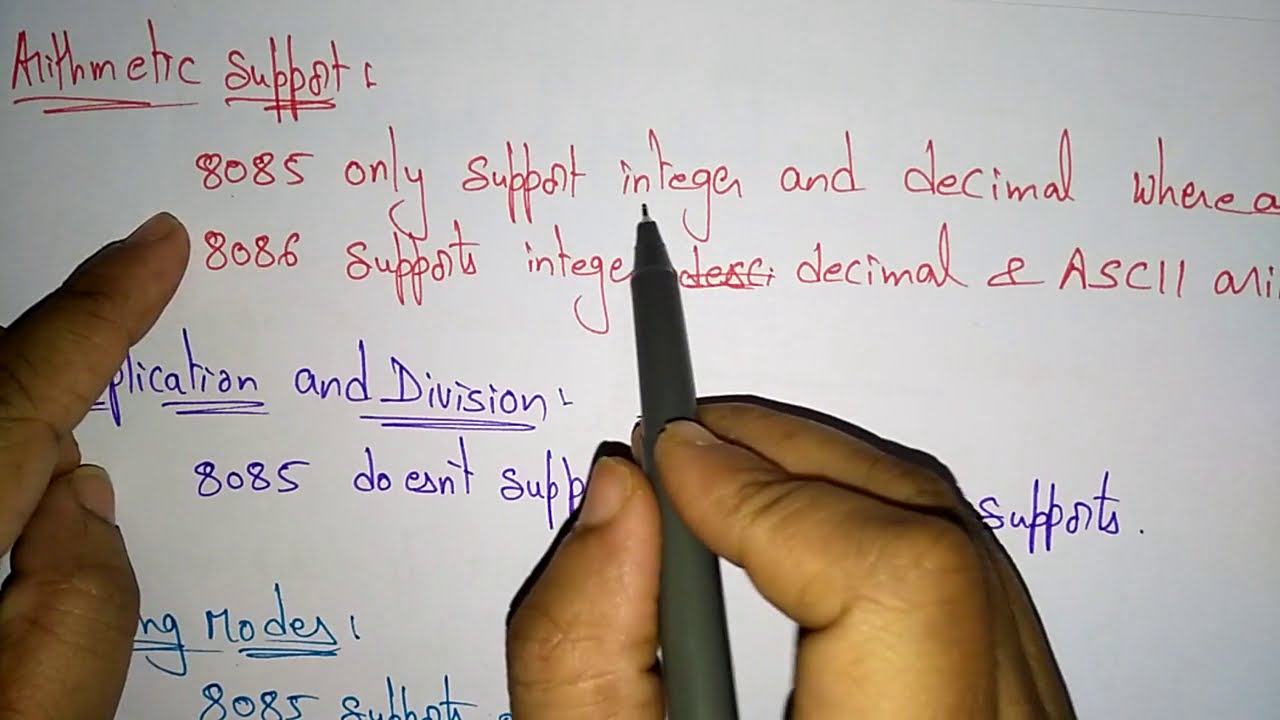 Arithmetic Support:
8085 only support integer and decimal where a
8086 supports intege desc: decimal & ASCII ari
plication and Division:
8085 doesn't supp supports.
ng Modes:
8085 supports